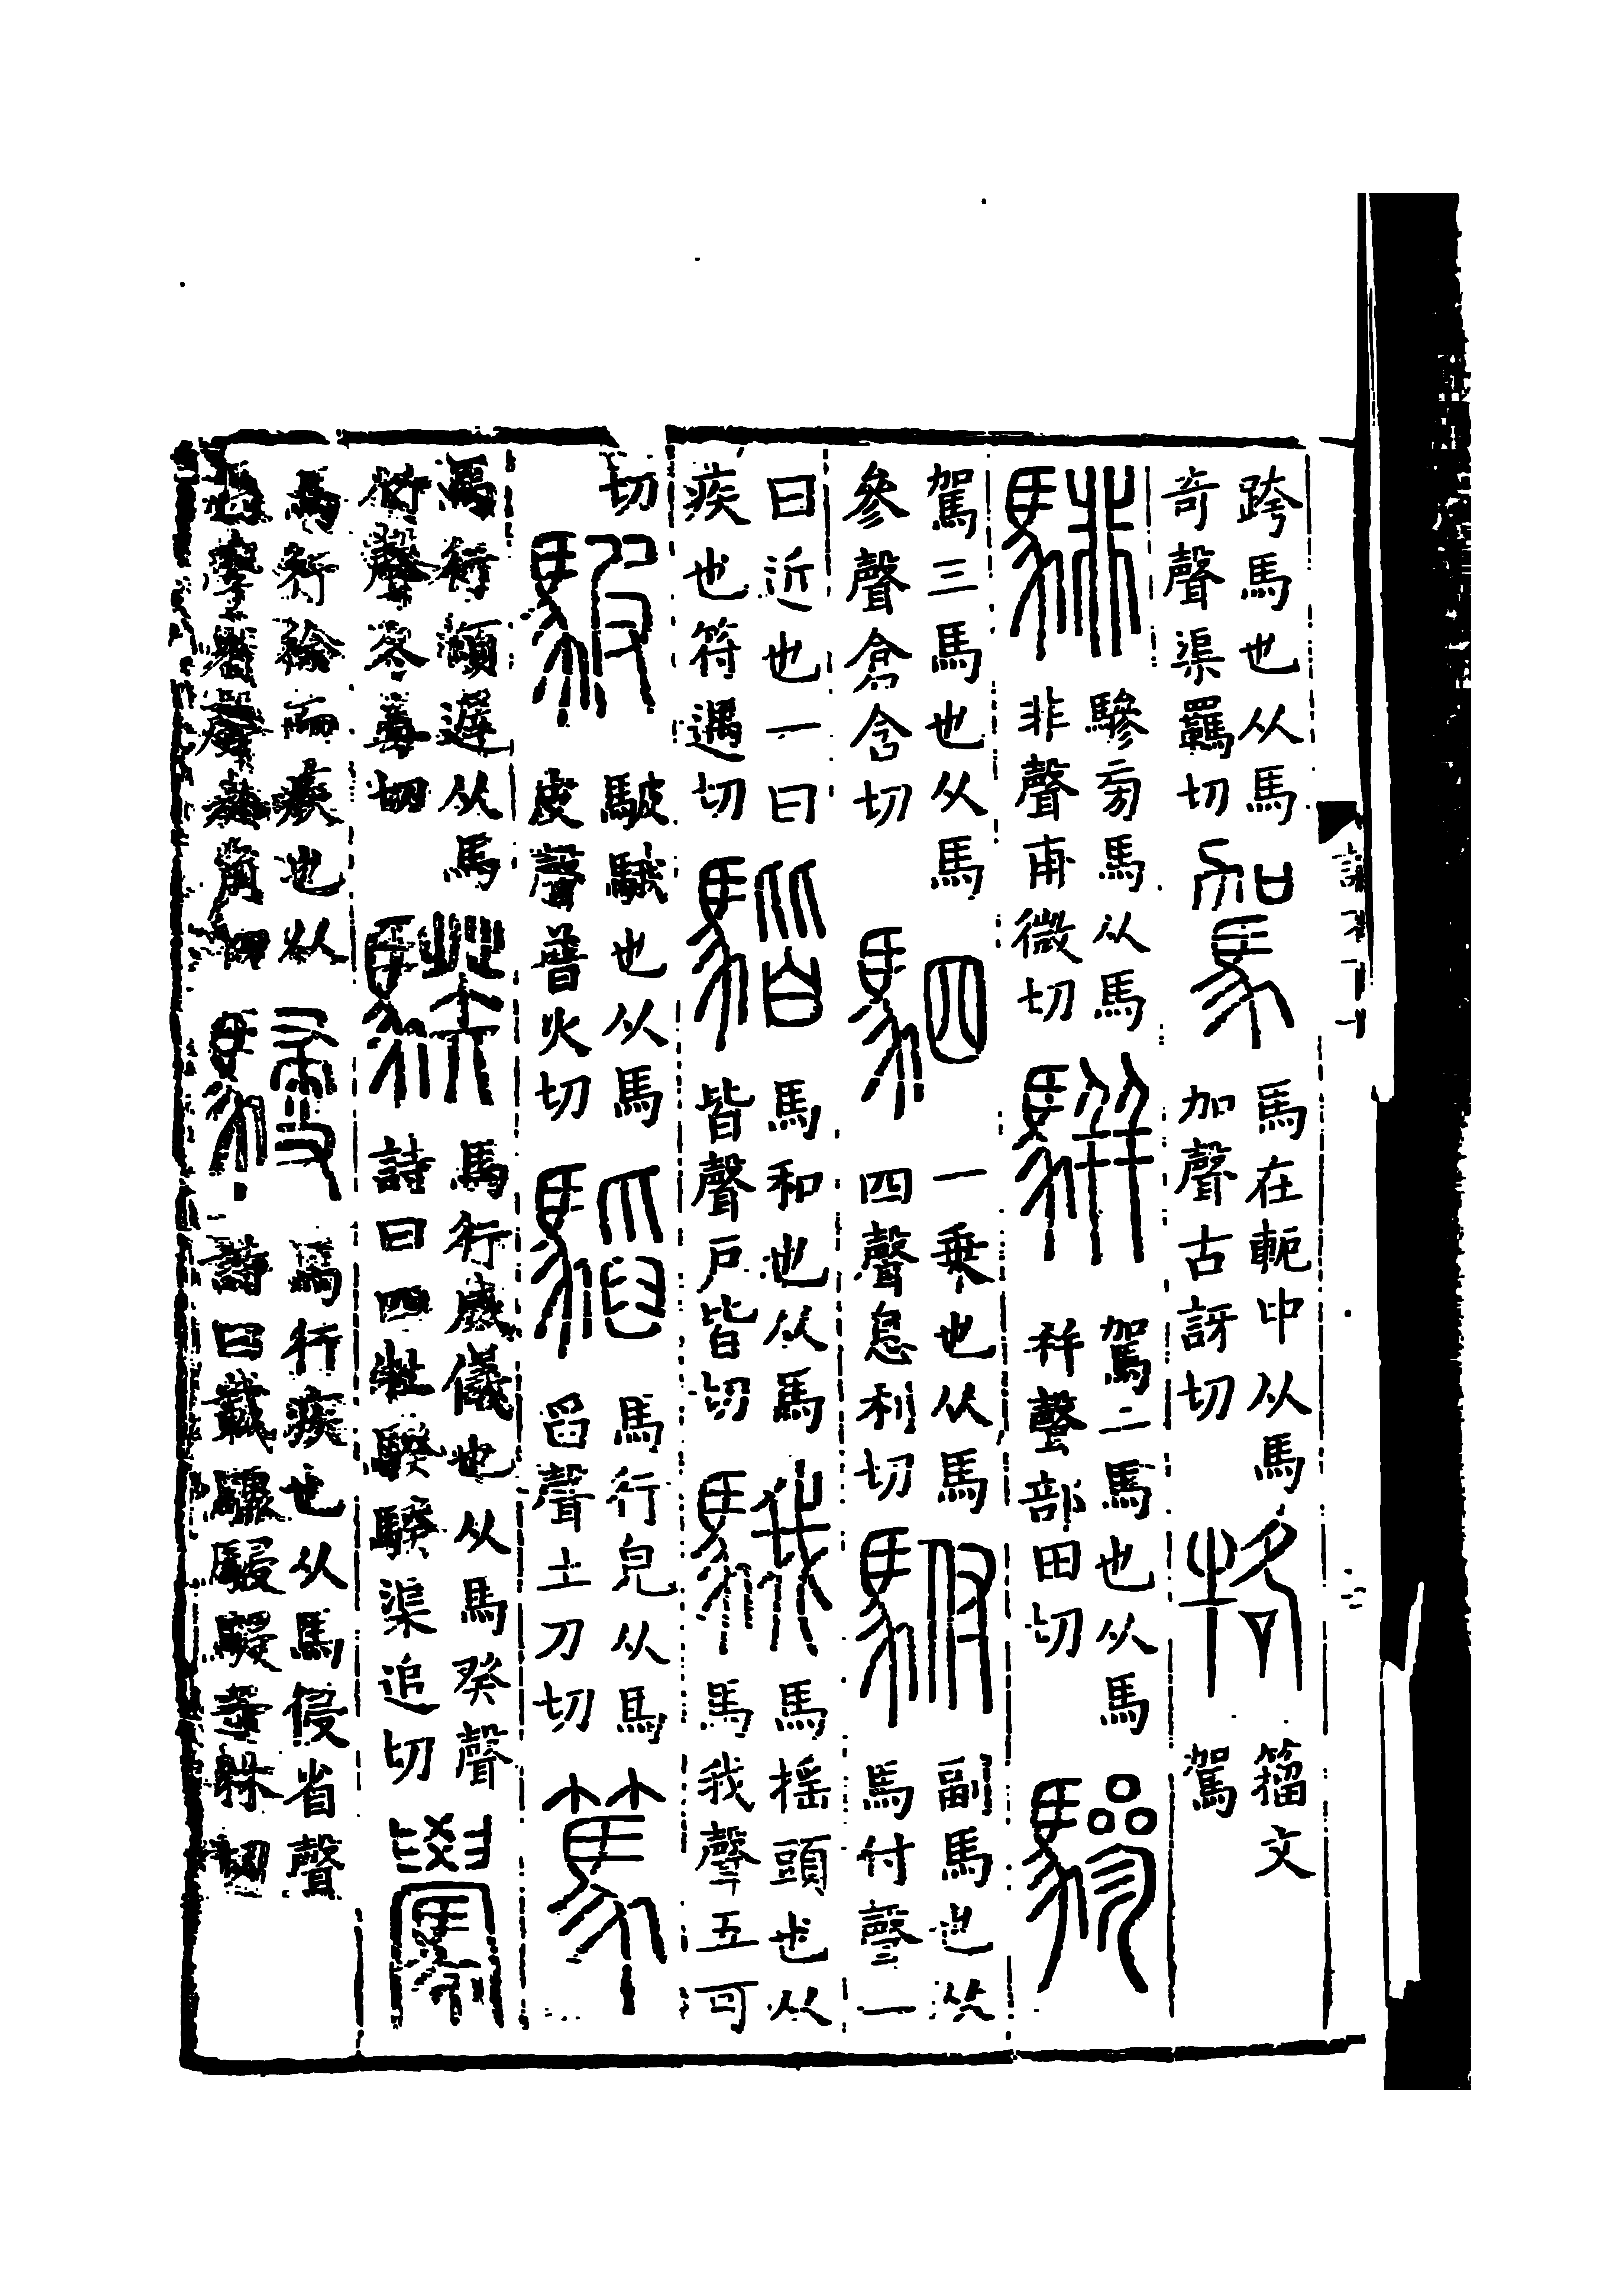 跨馬也从馬
奇聲渠羈切
駕
馬在軛中从馬
加聲古訝切
籒文
駕
騑
驂旁馬从馬
非聲甫微切
駢
駕二馬也从馬
幷聲部田切
驂
駕三馬也从馬
參聲倉含切
駟
一乗也从馬
四聲息利切
駙
副馬也从
馬付聲一
曰近也一曰
疾也符遇切
馬和也从馬
皆聲戶皆切
騀
馬搖頭也从
馬我聲五可
切
駊
駊騀也从馬
皮聲普火切
馬行皃从馬
舀聲土刀切
篤
馬行頓遲从馬
竹聲冬毒切
騤
馬行威儀也从馬癸聲
詩曰四牡騤騤渠追切
馬行徐而疾也从
馬學省聲於角切
駸
馬行疾也从馬侵省聲
詩曰載驟駸駸子林切